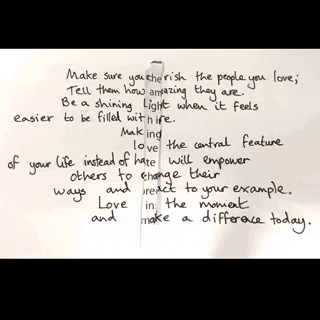 Make sure you cherish the people you love;
Tell them how amazing they are.
Be a shining light when it feels
easier to be filled with ire.
Making
love the central feature
of your life instead of hate will empower
others to change their
ways and react to your example.
Love in the moment
and make a difference today.